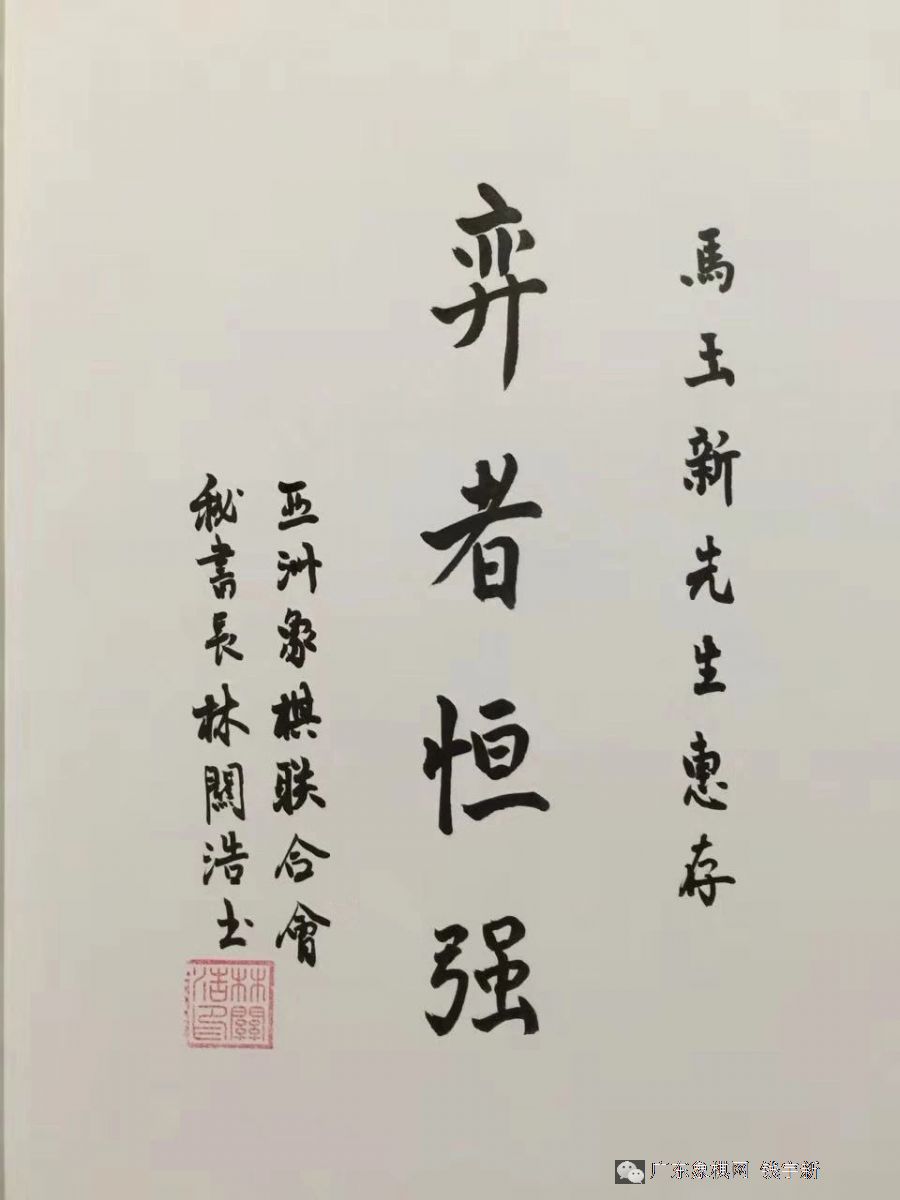 馬王新先生惠存
弈者恒强
亚洲象棋联合會
秘書長林關浩书
林關浩印
广东象棋网